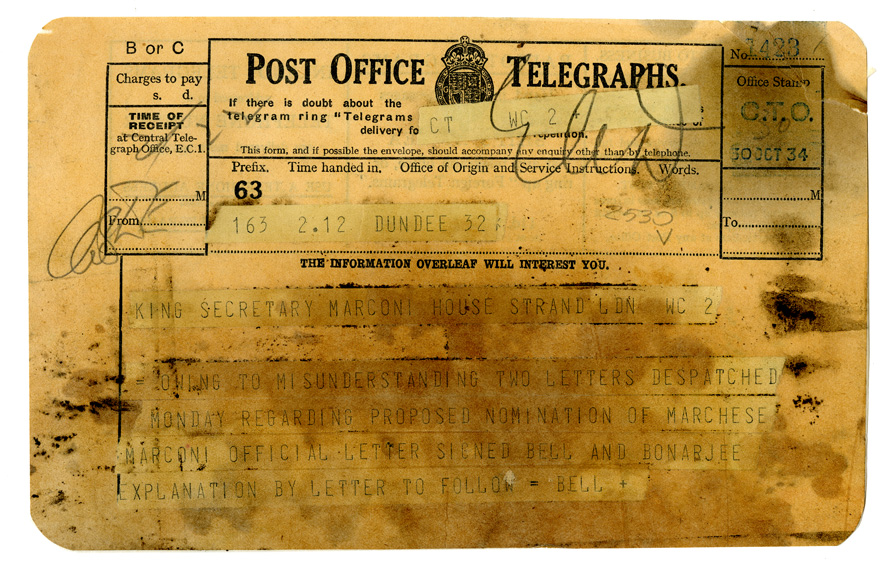 B or C
POST OFFICE TELEGRAPHS.
No. 1423
Charges to pay
s. d.
If there is doubt about the
telegram ring "Telegrams
delivery fo
CT WC 2 +
repetition.
Office Stamp
C.T.O.
30 OCT 34
TIME OF
RECEIPT
at Central Tele-
graph Office, E.C.1.
This form, and if possible the envelope, should accompany any enquiry other than by telephone.
Prefix. Time handed in. Office of Origin and Service Instructions. Words.
63
M
M
From
163 2.12 DUNDEE 32
2530
To
THE INFORMATION OVERLEAF WILL INTEREST YOU.
KING SECRETARY MARCONI HOUSE STRAND LDN WC 2
= OWING TO MISUNDERSTANDING TWO LETTERS DESPATCHED
MONDAY REGARDING PROPOSED NOMINATION OF MARCHESE
MARCONI OFFICIAL LETTER SIGNED BELL AND BONARJEE
EXPLANATION BY LETTER TO FOLLOW = BELL +